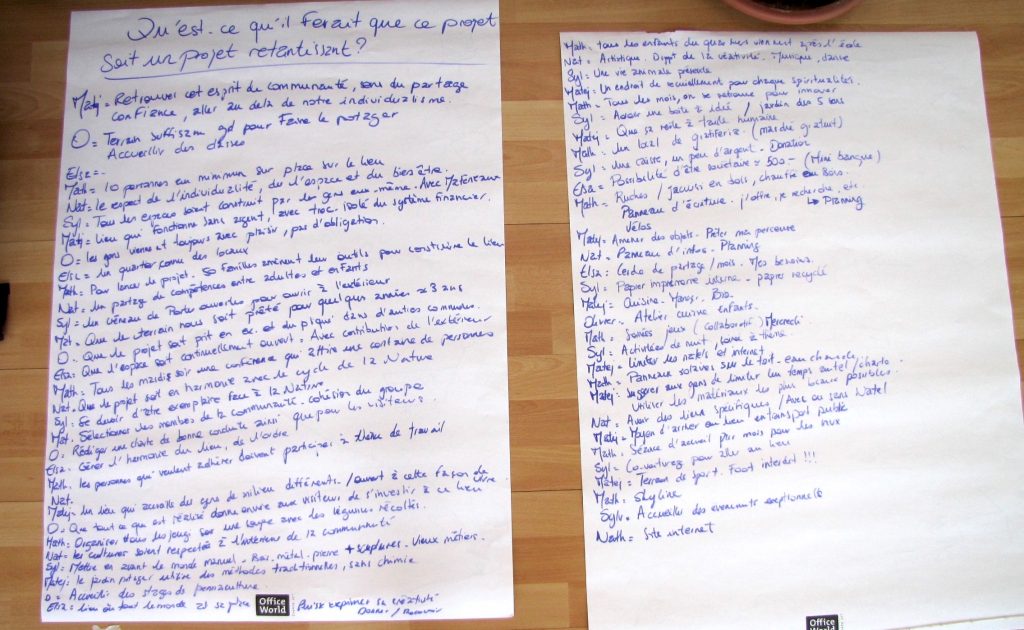 Qu'est-ce qu'il ferait que ce projet
soit un projet retentissent?
Matej = Retrouver cet esprit de communauté, sens du partage
confience, aller au delà de notre individualisme.
O = Terrain suffisam gd pour faire le potager
Accueillir des
Elsa = -
Math = 10 personnes au minimum sur place sur le lieu
Nat = le respect de l'individualité, de l'espace et du bien être.
Syl = Tous les espaces soient construit par les gens eux-même. Avec Matériaux
Matej = lieu qui fonctionne sans argent, avec troc. isolé du système financier.
O = les gens viennent toujours avec plaisir, pas d'obligation.
Elsa = Un quartier comme des locaux
Math = Pour lancer le projet. 50 familles amènent leur outils pour construire le lieu
Nat = Un partage de compétences entre adultes et enfants
Syl = Un créneau de Portes ouvertes pour ouvrir à l'extérieur
Mat = Que le terrain nous soit prêté pour quelques années ≥ 3 ans
O = Que le projet soit prit en ex. et dupliqué dans d'autres communes.
Elsa = Que l'espace soit continuellement ouvert. Avec contribution de l'extérieur
Math = Tous les mardis soir une conférence qui attire une centaine de personnes
Nat = Que le projet soit en harmonie avec le cycle de la Nature
Syl = Se devoir d'être exemplaire face à la Nature
Mat = Sélectionner des membres de la communauté - cohésion du groupe
O = Rédiger une charte de bonne conduite ainsi que pour les visiteurs.
Elsa = Gérer l'harmonie du lieu, de l'ordre
Math = les personnes qui veulent adhérer doivent participer à de travail
Nat =
Matej = Un lieu qui accueille des gens de milieu différents. / ouvert à cette façon de vivre.
O = Que tout ce qui est réalisé donne envie aux visiteurs de s'investir à ce lieu
Math = Organiser tous les jeudi soir une soupe avec des légumes récoltés.
Nat = les cultures soient respectées à l'intérieur de la communauté
Syl = Mettre en avant le monde manuel - Bois. métal. pierre + sculptures. Vieux métiers.
Matej = le jardin potager utilise des méthodes traditionnelles, sans chimie
O = Accueillir des stages de permaculture
Elsa = Lieu où tout le monde se plaise Puisse exprimer sa créativité
Donner / Recevoir
Office World
Math = tous les enfants du quartiers viennent après l'école
Nat = Artistique. Dvpt de la créativité. Musique, danse
Syl = Une vie animale présente
Matej = Un endroit de recueillement pour chaque spiritualités.
Math = Tous les mois, on se retrouve pour innover
Syl = Avoir une boîte à idée / jardin des 5 sens
Matej = Que se reste à taille humaine
Math = Un local de gratiferia (marché gratuit)
Syl = Une caisse, un peu d'argent. Donation
Elsa = Possibilité d'être sociétaire = 500.- (Mini banque)
Math = Ruches / jacusi en bois, chauffé au bois.
Panneau d'écriture. j'offre, je recherche, etc.
↳ Planning
Vélos
Matej = Amener des objets. Prêter ma perceuse
Nat = Panneau d'infos. Planning
Elsa = Cercle de partage / mois. Mes besoins.
Syl = Papier imprimerie interne - papier recyclé
Matej = Cuisine. Bio.
Olivier = Atelier cuisine enfants.
Math = Soirées jeux (collaboratif) Mercredi
Syl = Activités de nuit, à thème
Matej = Limiter les natels et internet
Math = Panneaux solaires sur le toit - eau chaude.
Matej = Suggérer aux gens de limiter leur temps natel / charte
Utiliser les matériaux les plus locaux possibles.
Nat = Avoir des lieux spécifiques / Avec ou sans Natel
Matej = Moyen d'arriver au lieu en transport public
Math = Séance d'accueil par mois pour les nvx
Syl = Co-voiturage pour aller au lieu
Matej = Terrain de sport. Foot interdit !!!
Math = Skyline
Sylv = Accueillir des evenements exceptionnelle
Nath = Site internet
Office World